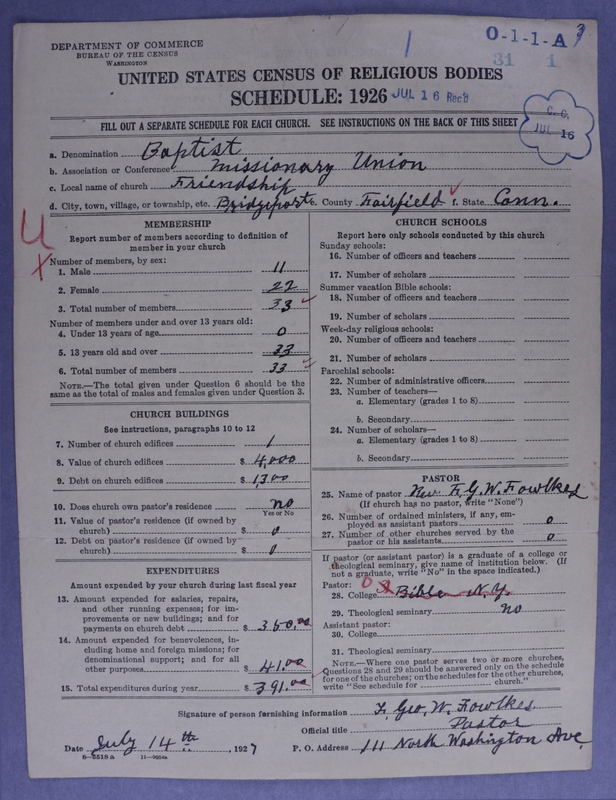 DEPARTMENT OF COMMERCE
BUREAU OF THE CENSUS
WASHINGTON
1
O-1-1-A
3
31 1
UNITED STATES CENSUS OF RELIGIOUS BODIES
SCHEDULE: 1926 JUL 16 Rec'd
C. C.
JUL 16
FILL OUT A SEPARATE SCHEDULE FOR EACH CHURCH. SEE INSTRUCTIONS ON THE BACK OF THIS SHEET
a. Denomination Baptist
b. Association or Conference Missionary Union
c. Local name of church Friendship
d. City, town, village, or township, etc. Bridgeport e. County Fairfield f. State Conn.
MEMBERSHIP
Report number of members according to definition of
member in your church
Number of members, by sex:
1. Male 11
2. Female 22
3. Total number of members 33
Number of members under and over 13 years old:
4. Under 13 years of age 0
5. 13 years old and over 33
6. Total number of members 33
NOTE.—The total given under Question 6 should be the
same as the total of males and females given under Question 3.
CHURCH BUILDINGS
See instructions, paragraphs 10 to 12
7. Number of church edifices 1
8. Value of church edifices $ 4,000
9. Debt on church edifices $ 1,300
10. Does church own pastor's residence no
Yes or No
11. Value of pastor's residence (if owned by
church) $ 0
12. Debt on pastor's residence (if owned by
church) $ 0
EXPENDITURES
Amount expended by your church during last fiscal year
13. Amount expended for salaries, repairs,
and other running expenses; for im-
provements or new buildings; and for
payments on church debt $ 350.00
14. Amount expended for benevolences, in-
cluding home and foreign missions; for
denominational support; and for all
other purposes $ 41.00
15. Total expenditures during year $ 391.00
CHURCH SCHOOLS
Report here only schools conducted by this church
Sunday schools:
16. Number of officers and teachers
17. Number of scholars
Summer vacation Bible schools:
18. Number of officers and teachers
19. Number of scholars
Week-day religious schools:
20. Number of officers and teachers
21. Number of scholars
Parochial schools:
22. Number of administrative officers
23. Number of teachers—
a. Elementary (grades 1 to 8)
b. Secondary
24. Number of scholars—
a. Elementary (grades 1 to 8)
b. Secondary
PASTOR
25. Name of pastor Rev. F. G. W. Fowlkes
(If church has no pastor, write "None")
26. Number of ordained ministers, if any, em-
ployed as assistant pastors 0
27. Number of other churches served by the
pastor or his assistants 0
If pastor (or assistant pastor) is a graduate of a college or
theological seminary, give name of institution below. (If
not a graduate, write "No" in the space indicated.)
Pastor:
28. College Bible N.Y.
29. Theological seminary no
Assistant pastor:
30. College
31. Theological seminary
NOTE.—Where one pastor serves two or more churches,
Questions 28 and 29 should be answered only on the schedule
for one of the churches; on the schedules for the other churches,
write "See schedule for church."
Signature of person furnishing information F. Geo. W. Fowlkes
Official title Pastor
Date July 14th, 1927 P. O. Address 111 North Washington Ave.